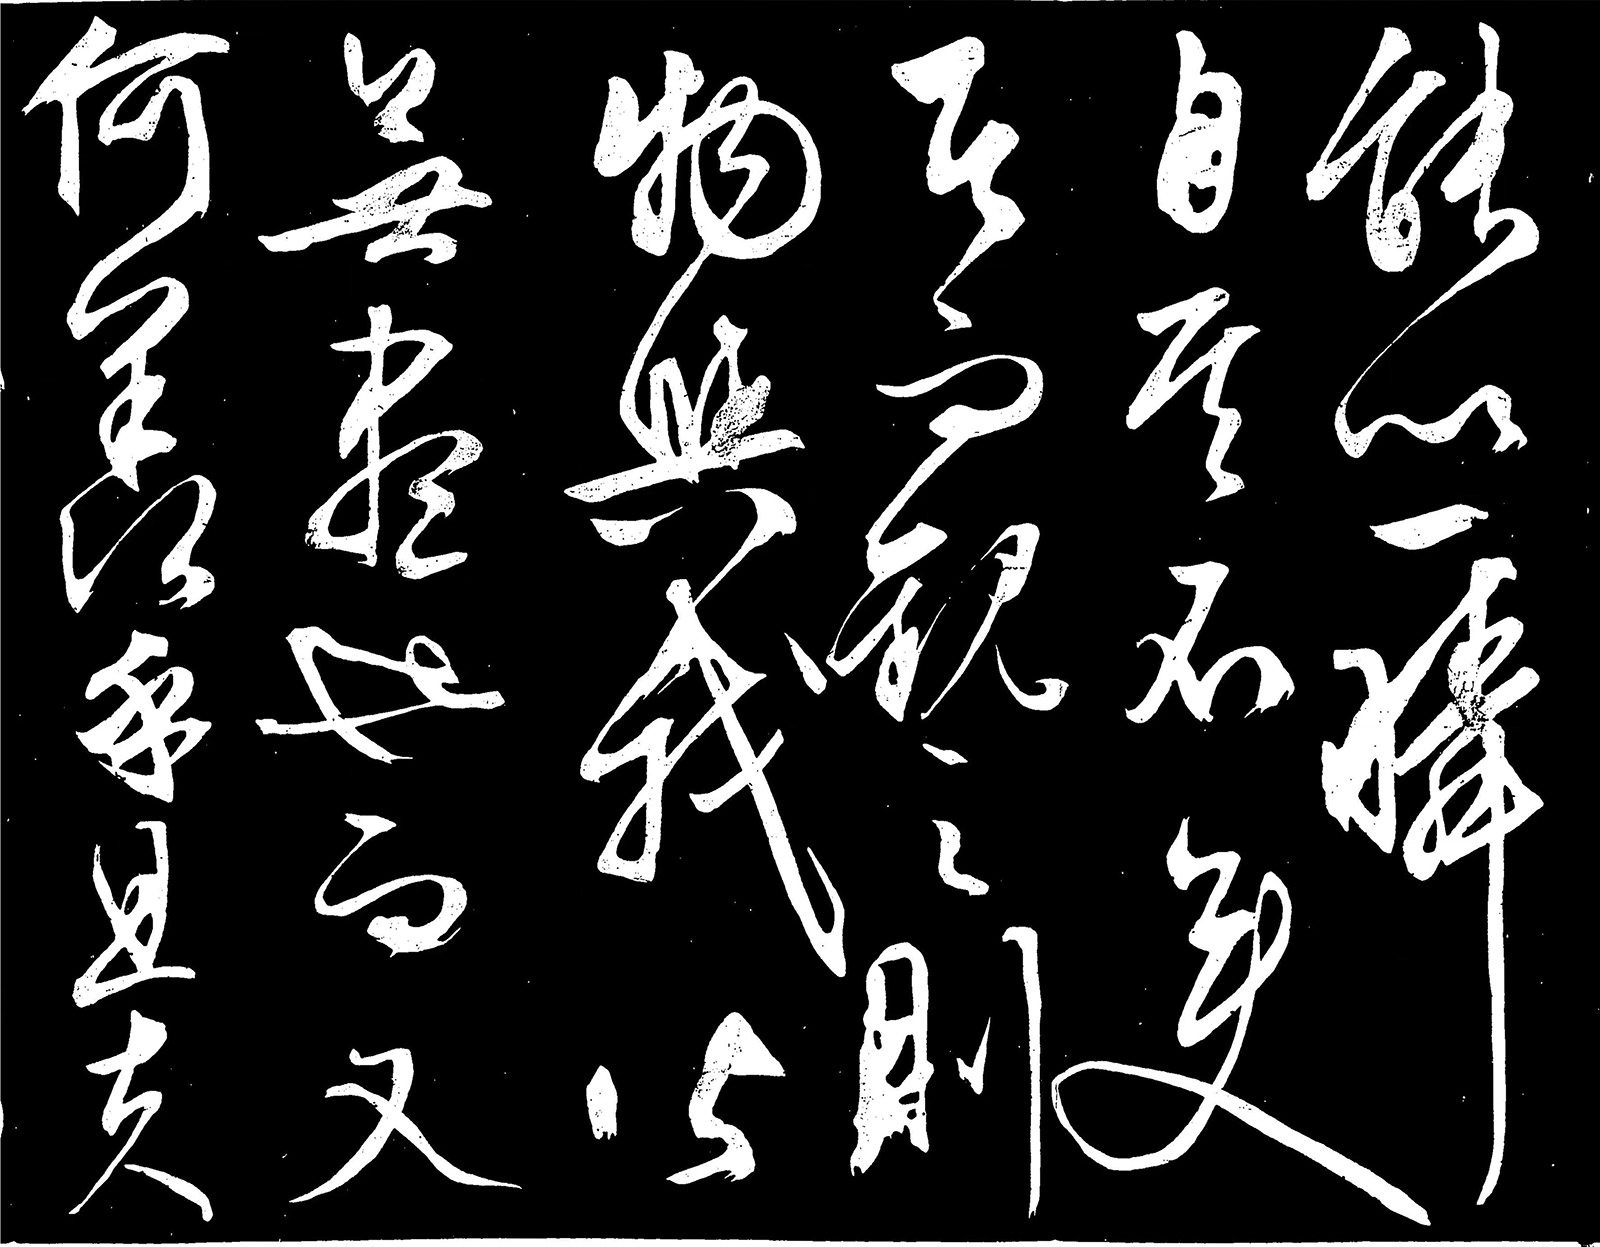 能以一瞬
自其不變
者而觀之則
物與我
皆無盡也而又
何羨乎且夫